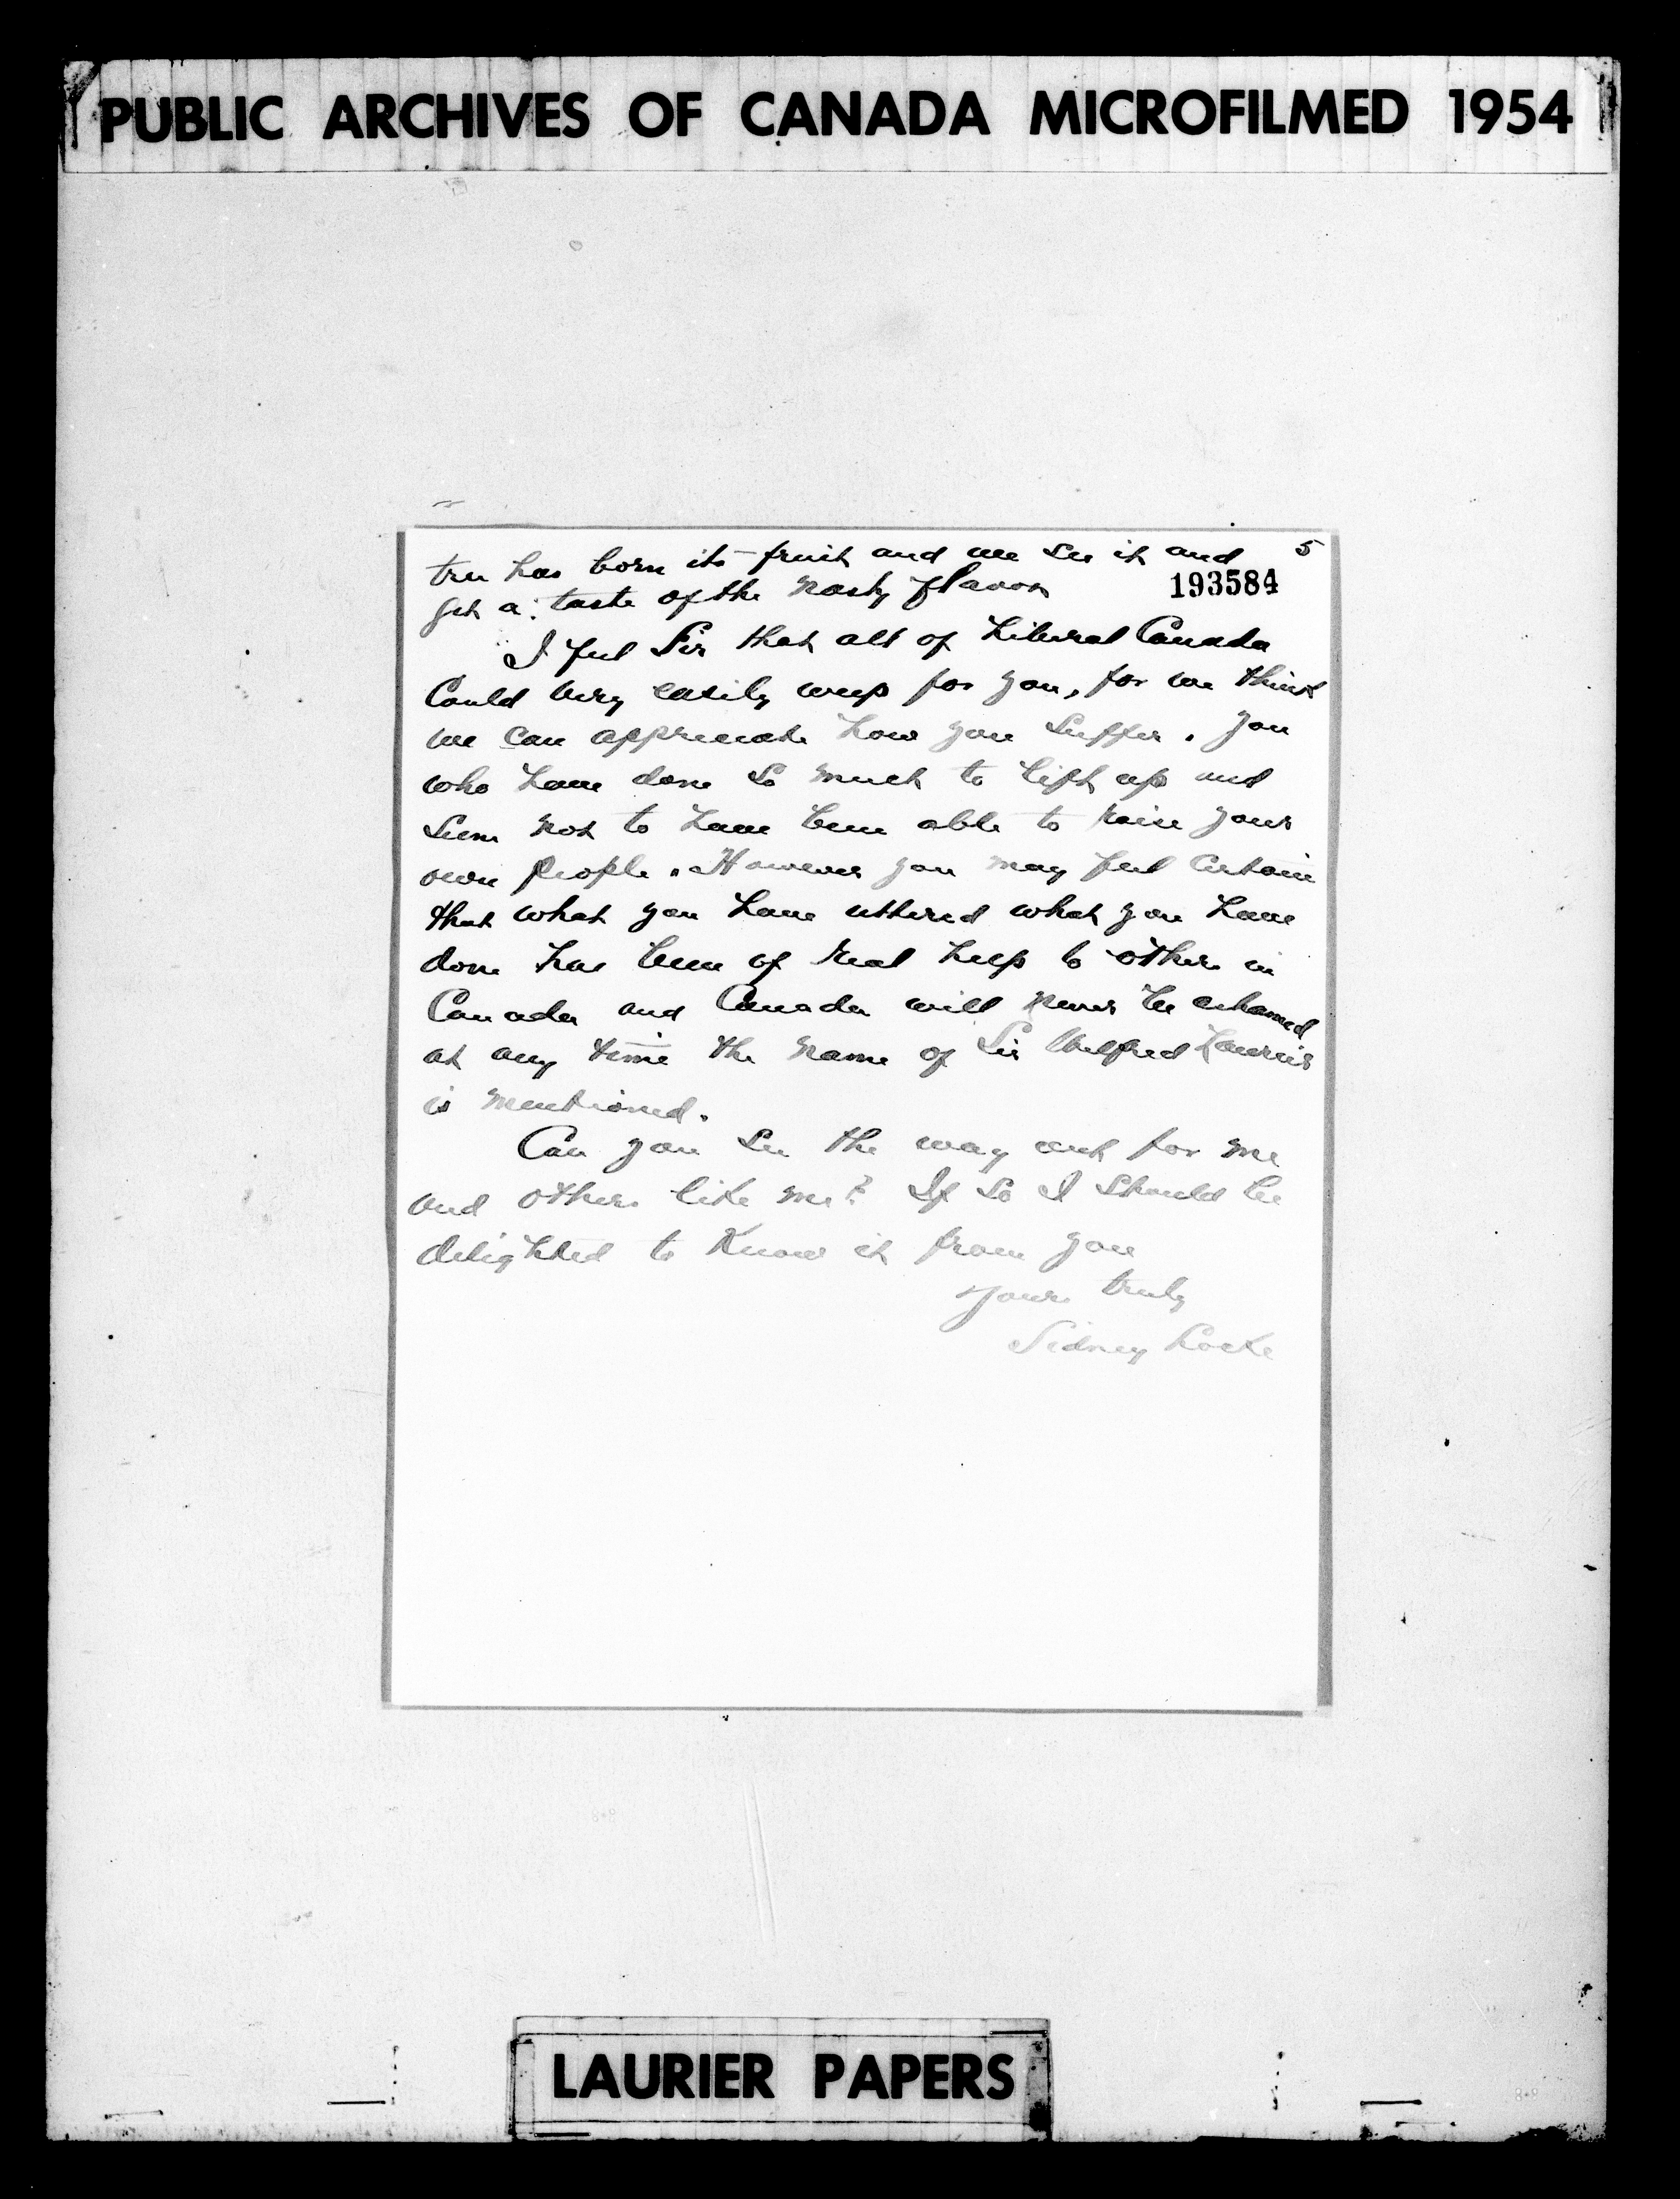 PUBLIC ARCHIVES OF CANADA MICROFILMED 1954
5
tree has born its fruit and we see it and
193584
get a taste of the nasty flavor
I feel Sir that all of Liberal Canada
Could very easily weep for you, for we think
we can appreciate how you suffer. you
who have done so much to lift up and
seem not to have been able to raise your
own people. However you may feel certain
that what you have uttered what you have
done has been of real help to others in
Canada and Canada will never be ashamed
at any time the name of Sir Wilfred Laurier
is mentioned.
Can you see the way out for me
and others like me? If so I should be
delighted to know it from you
Yours truly
Sidney Locke
LAURIER PAPERS